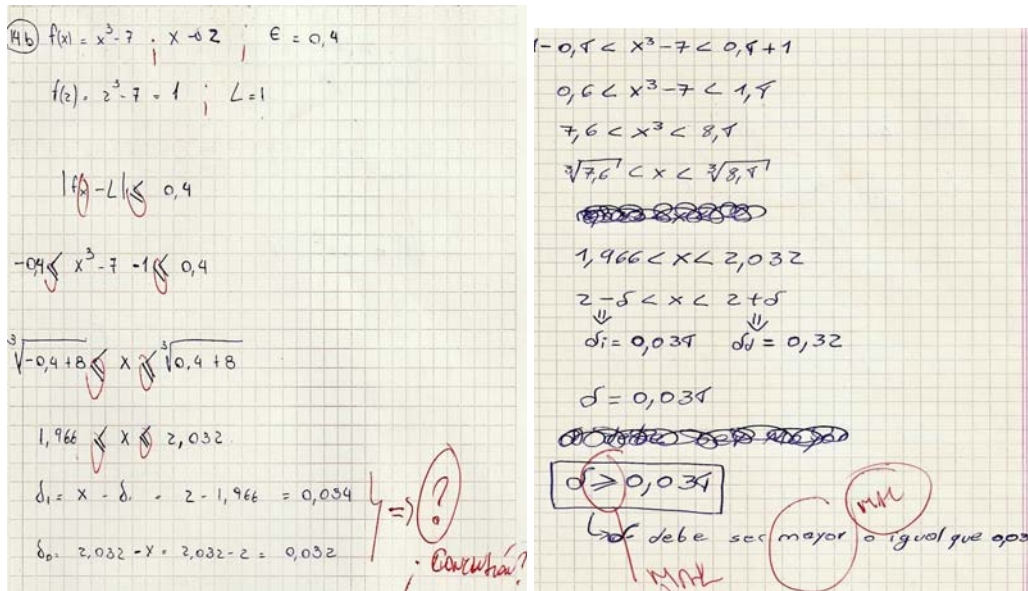 14b) f(x) = x³-7 ; x→2 ; ϵ = 0,4
f(2) = 2³-7 = 1 ; L=1
|f(x) - L| ≤ 0,4
-0,4 ≤ x³-7 -1 ≤ 0,4
∛(-0,4+8) ≤ x ≤ ∛(0,4+8)
1,966 ≤ x ≤ 2,032
δ₁ = x - δ₁ = 2 - 1,966 = 0,034
δ₀ = 2,032 - x = 2,032 - 2 = 0,032
⇒ ?
¿Conclusión?
1-0,4 < x³-7 < 0,4+1
0,6 < x³-7 < 1,4
7,6 < x³ < 8,4
∛7,6 < x < ∛8,4
1,966 < x < 2,032
2-δ < x < 2+δ
δi = 0,034 δd = 0,32
δ = 0,034
δ ≥ 0,034
MAL
↳ δ debe ser mayor o igual que 0,03
MAL